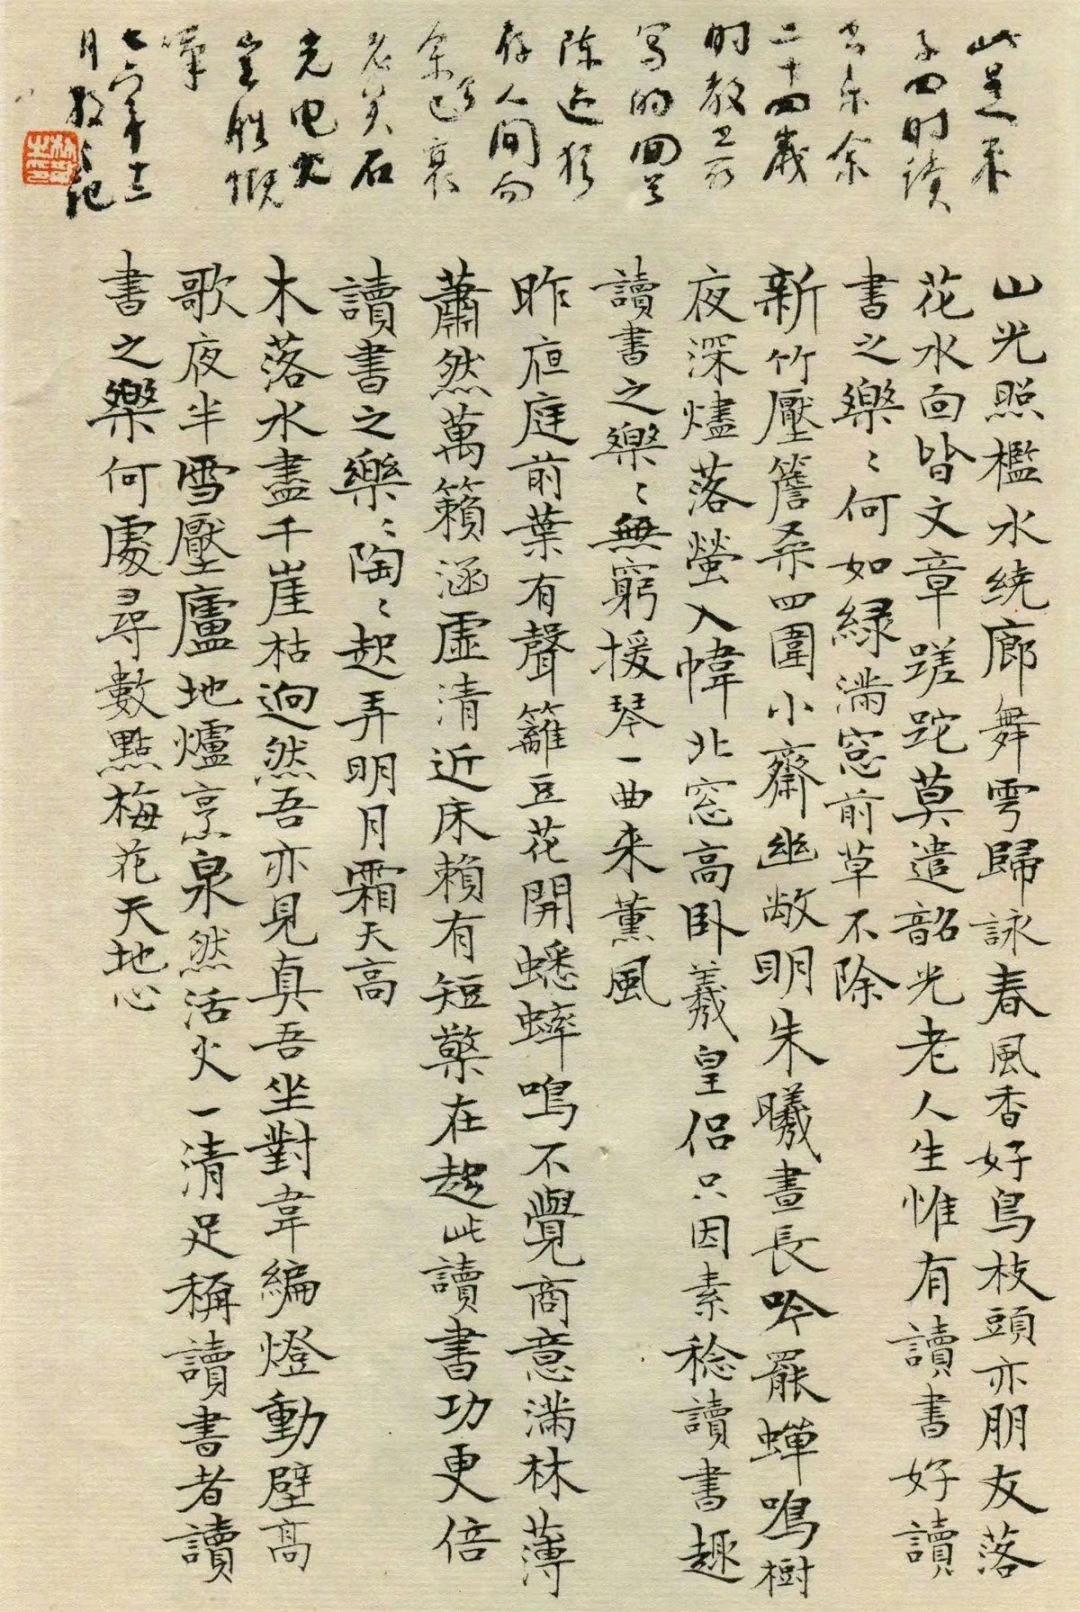 此是朱
子四时读
书乐余
二十四岁
时教
写的回首
陈迹犹
存人间而
余已衰
老矣石
光电火
岂胜慨
嘆
七六年十二
月散之记
山光照檻水繞廊舞雩歸詠春風香好鳥枝頭亦朋友落
花水面皆文章蹉跎莫遣韶光老人生惟有讀書好讀
書之樂〻何如緑滿窓前草不除
新竹壓簷桑四圍小齋幽敞明朱曦晝長吟罷蟬鳴樹
夜深燼落螢入幃北窓高卧羲皇侣只因素稔讀書趣
讀書之樂〻無窮援琴一曲来薰風
昨夜庭前葉有聲籬豆花開蟋蟀鳴不覺商意滿林薄
蕭然萬籟涵虛清近床賴有短檠在趁此讀書功更倍
讀書之樂〻陶〻起弄明月霜天高
木落水盡千崖枯迥然吾亦見真吾坐對韋編燈動壁高
歌夜半雪壓廬地爐烹泉然活火一清足稱讀書者讀
書之樂何處尋數點梅花天地心